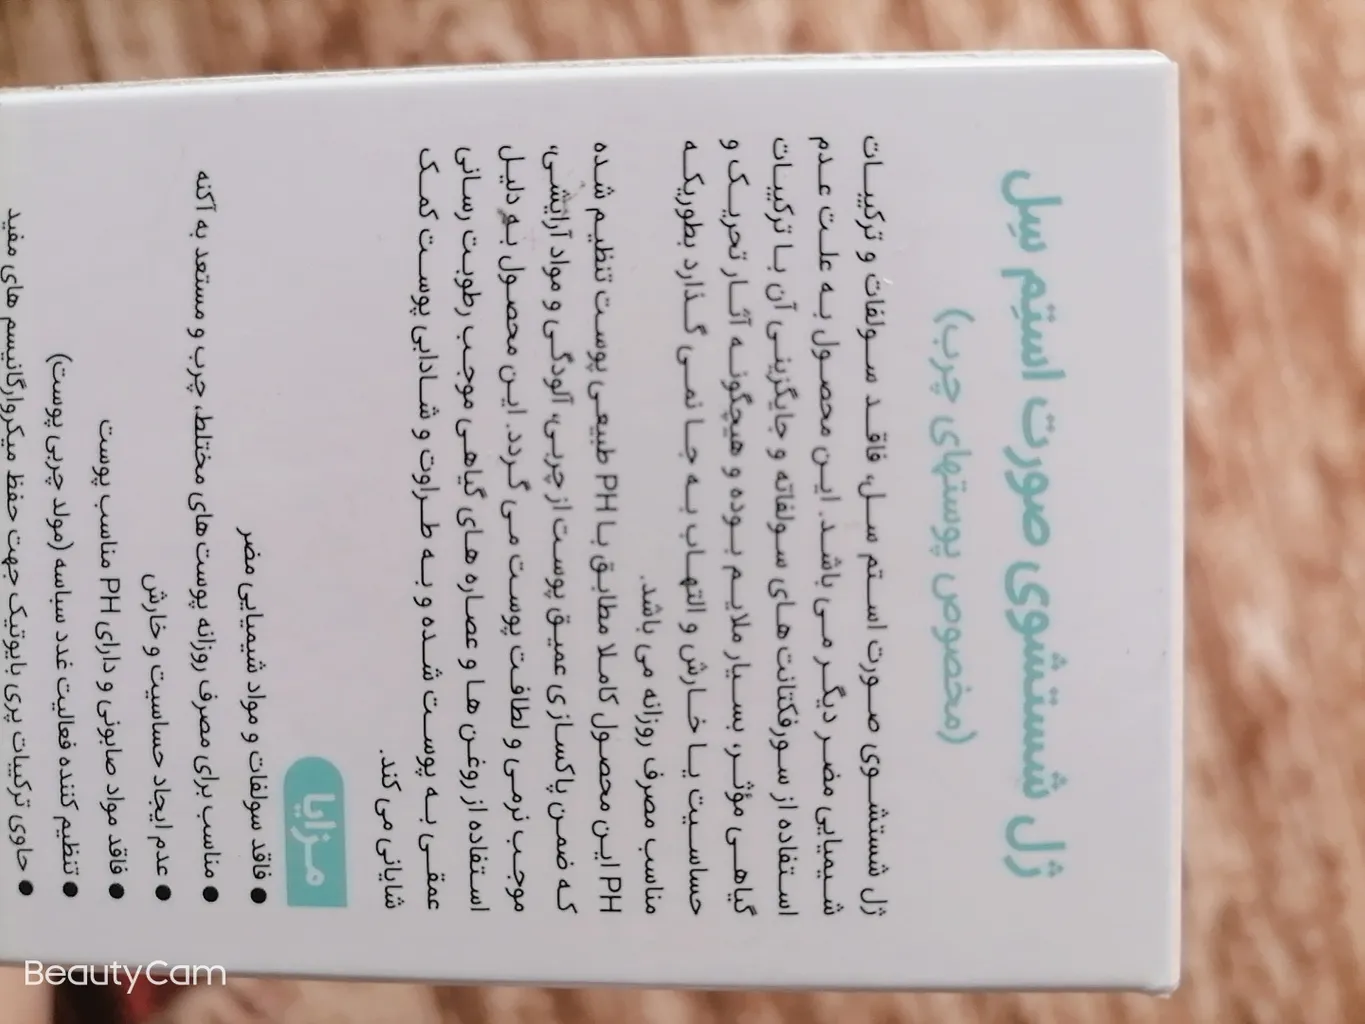 ژل شستشوی صورت استم سل
(مخصوص پوستهای چرب)
ژل شستشـوی صـورت اسـتم سـل، فاقـد سـولفات و ترکیبـات
شـیمیایی مضـر دیگـر مـی باشـد. ایـن محصـول بـه علـت عـدم
اسـتفاده از سـورفکتانت هـای سـولفاته و جایگزینـی آن بـا ترکیبـات
گیاهـی مؤثـر، بسـیار ملایـم بـوده و هیچگونـه آثـار تحریـک و
حساسـیت یـا خـارش و التهـاب بـه جـا نمـی گـذارد بطوریکـه
مناسب مصرف روزانه می باشد.
PH این محصول کاملا مطابق با PH طبیعی پوست تنظیم شده
کـه ضمـن پاکسـازی عمیـق پوسـت از چربـی، آلودگـی و مواد آرایشـی،
موجـب نرمـی و لطافـت پوسـت مـی گـردد. ایـن محصـول بـه دلیـل
اسـتفاده از روغـن هـا و عصـاره هـای گیاهـی موجـب رطوبـت رسـانی
عمقـی بـه پوسـت شـده و بـه طـراوت و شـادابی پوسـت کمـک
شایانی می کند.
مـزایا
● فاقد سولفات و مواد شیمیایی مضر
● مناسب برای مصرف روزانه پوست های مختلط، چرب و مستعد به آکنه
● عدم ایجاد حساسیت و خارش
● فاقد مواد صابونی و دارای PH مناسب پوست
● تنظیم کننده فعالیت غدد سباسه (مولد چربی پوست)
● حاوی ترکیبات پری بایوتیک جهت حفظ میکروارگانیسم های مفید
BeautyCam